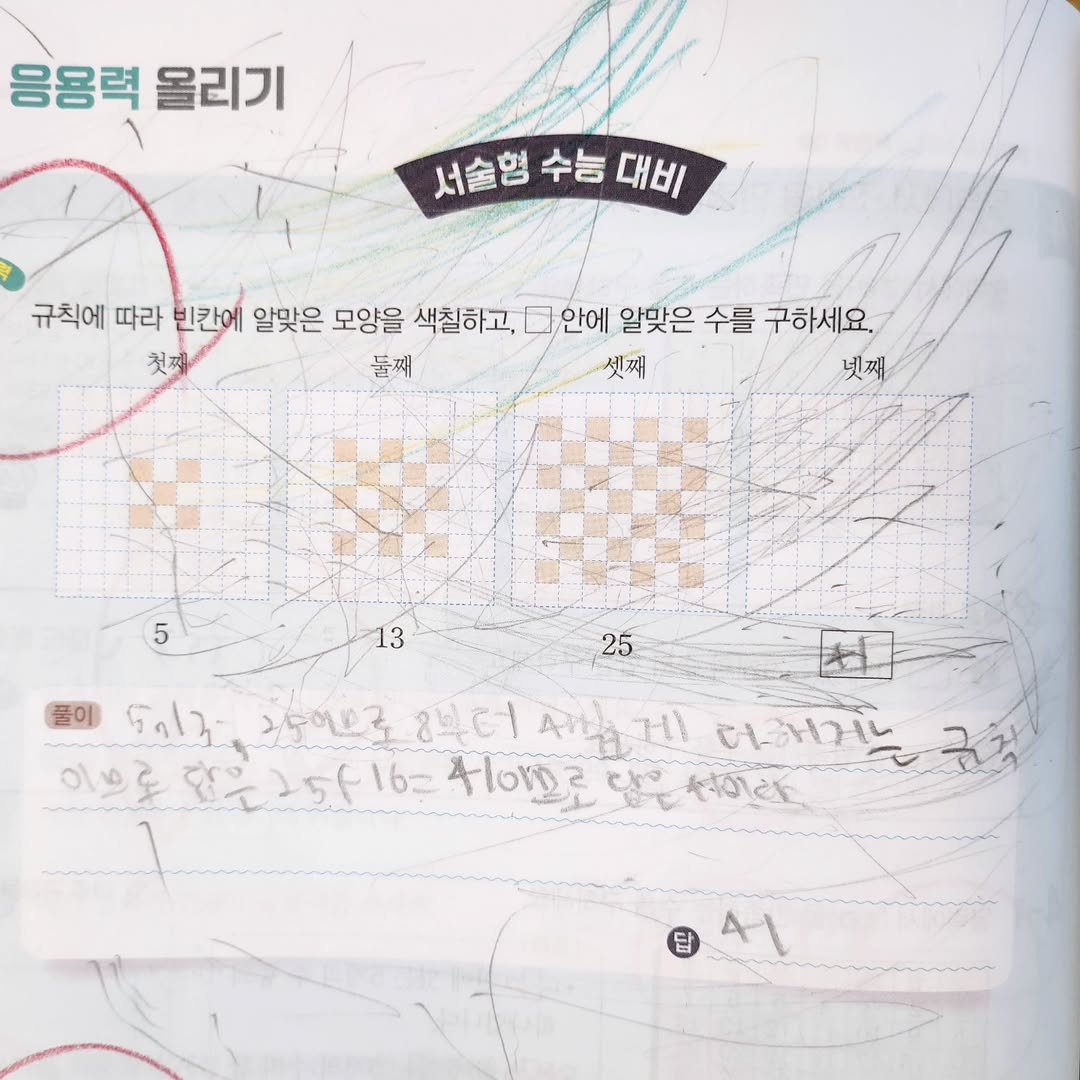 응용력 올리기
서술형 수능 대비
규칙에 따라 빈칸에 알맞은 모양을 색칠하고, □ 안에 알맞은 수를 구하세요.
첫째 둘째 셋째 넷째
5 13 25 41
풀이
25이므로 8부터 더해지는 규칙
이므로 답은 25+16=41이므로 답은
답 41